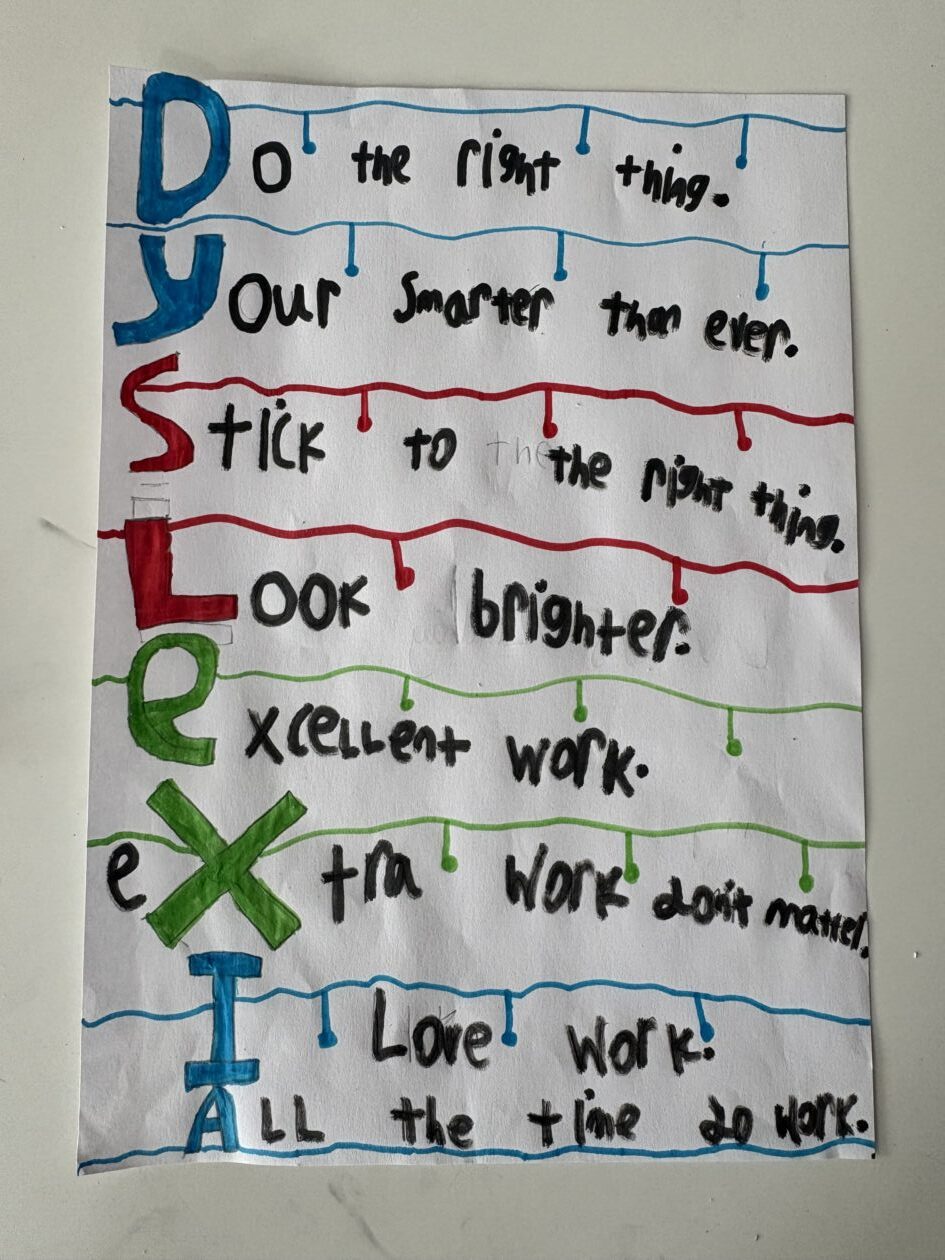 Do the right thing.
your smarter than ever.
Stick to the the right thing.
Look brighter.
excellent work.
eXtra work don't matter.
I Love work.
ALL the time do work.